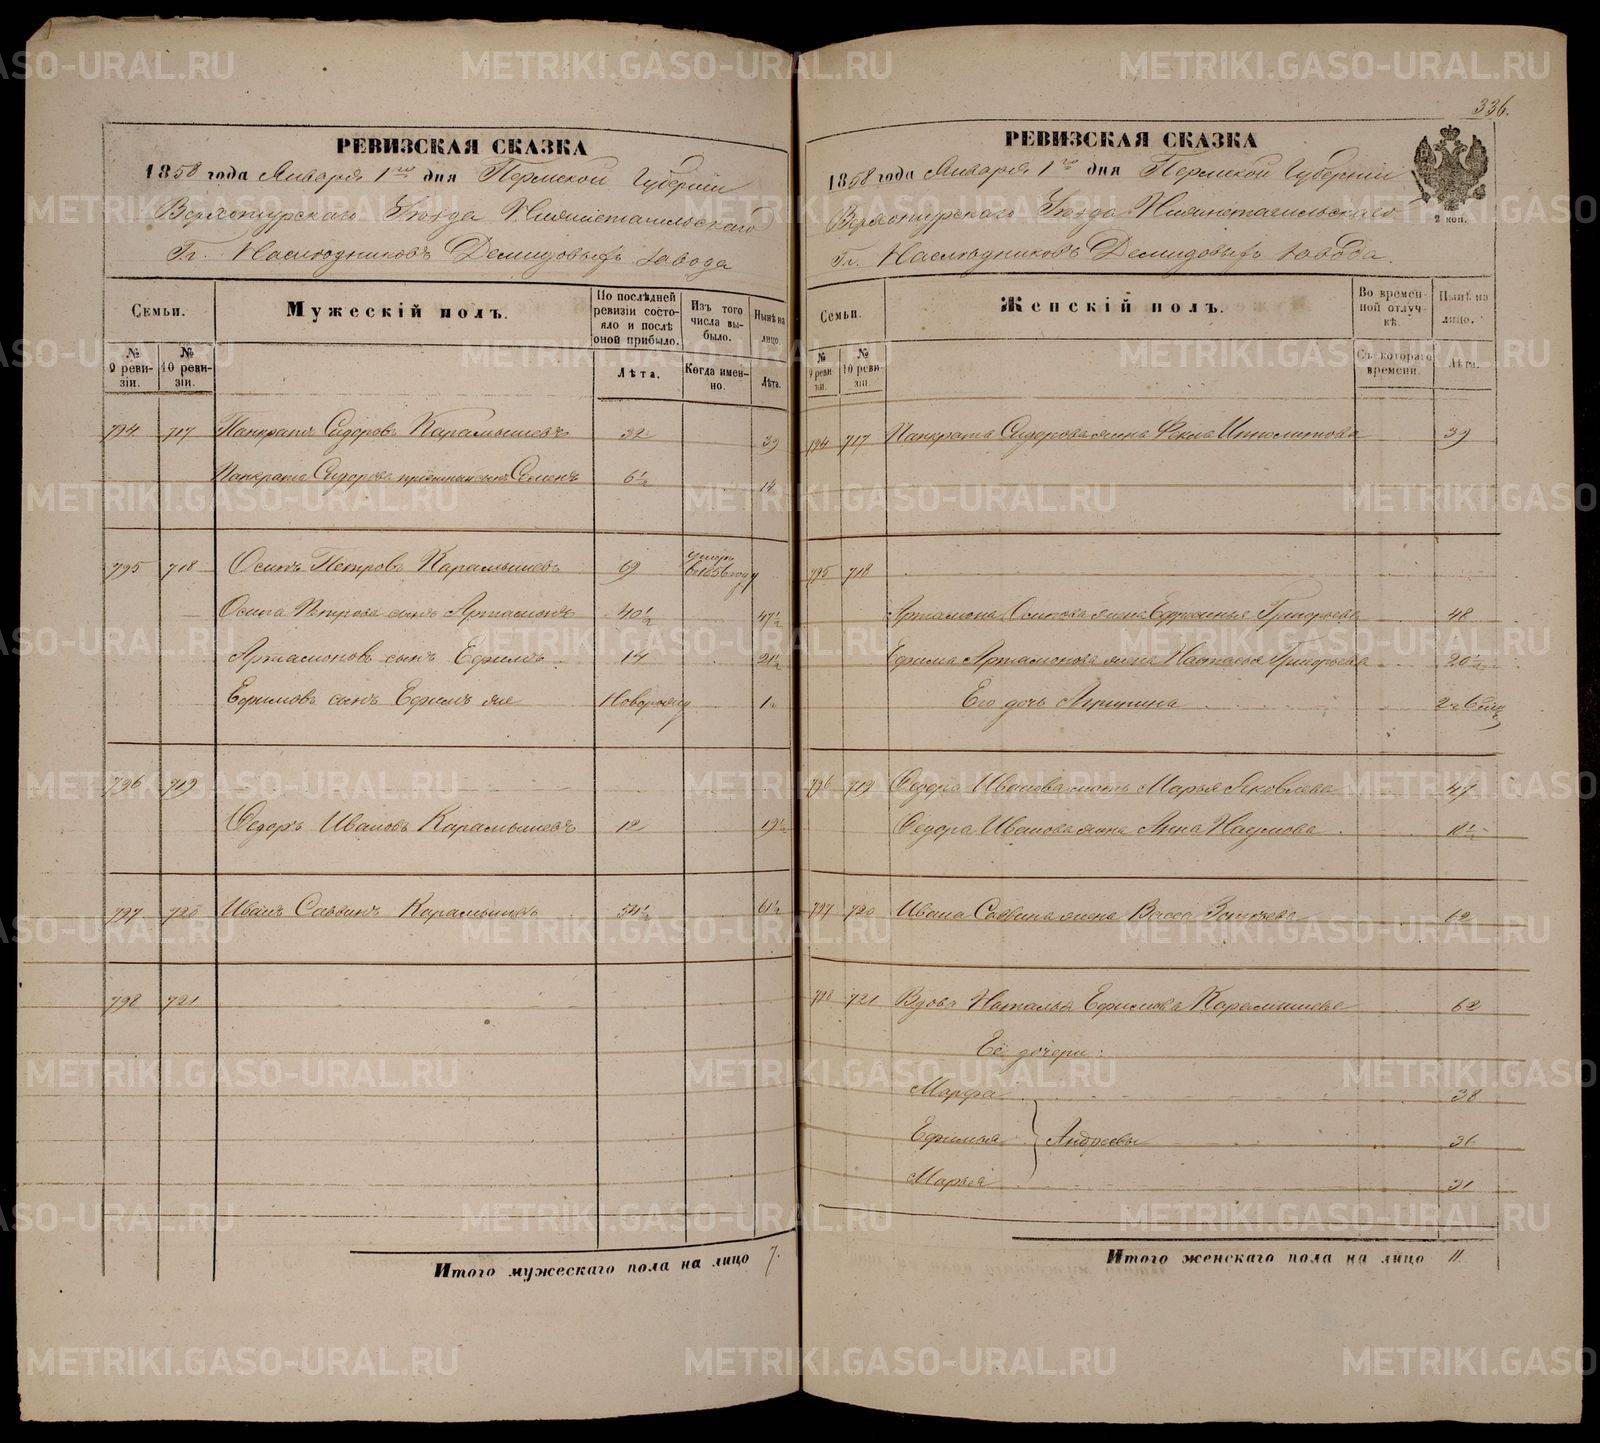 336.
РЕВИЗСКАЯ СКАЗКА
1858 года Января 1го дня Пермской Губерніи
Верхотурскаго Уѣзда Нижнетагильскаго
Гг. Наслѣдниковъ Демидовыхъ завода
Семьи.
Мужескій полъ.
По послѣдней ревизіи состояло и послѣ оной прибыло.
Изъ того числа выбыло.
Нынѣ на лицо.
№ 9 ревизіи.
№ 10 ревизіи.
Лѣта.
Когда именно.
Лѣта.
794 717 Панкратъ Сидоровъ Карамышевъ 32 39
Панкрата Сидорова пріемный сынъ Семенъ 6½ 14
795 718 Осипъ Петровъ Карамышевъ 69 умеръ въ 1856 году
Осипа Петрова сынъ Артамонъ 40½ 47½
Артамоновъ сынъ Ефимъ 14 21½
Ефимовъ сынъ Ефимъ же Новорожд 1
796 719
Федоръ Ивановъ Карамышевъ 12 19½
797 720 Иванъ Саввинъ Карамышевъ 54½ 61½
798 721
Итого мужескаго пола на лицо 7.
РЕВИЗСКАЯ СКАЗКА
1858 года Января 1го дня Пермской Губерніи
Верхотурскаго Уѣзда Нижнетагильскаго
Гг. Наслѣдниковъ Демидовыхъ завода.
2 коп.
Семьи.
Женскій полъ.
Во временной отлучкѣ.
Нынѣ на лицо.
№ 9 ревизіи.
№ 10 ревизіи.
Съ котораго времени.
Лѣта.
794 717 Панкрата Сидорова жена Фекла Ипполитова 39
795 718
Артамона Осипова жена Григорьева 48
Ефима Артамонова жена Наталья Григорьева 20½
Его дочь Агрипина
796 719 Федора Иванова мать Марья Яковлева 47
Федора Иванова жена Анна Наумова 18½
797 720 Ивана Саввина жена Васса 62
798 721 Вдова Наталья Ефимова Карамышева 62
Её дочери:
Марфа 38
Ефимья Андреевы 36
Марья 31
Итого женскаго пола на лицо 11.
METRIKI.GASO-URAL.RU